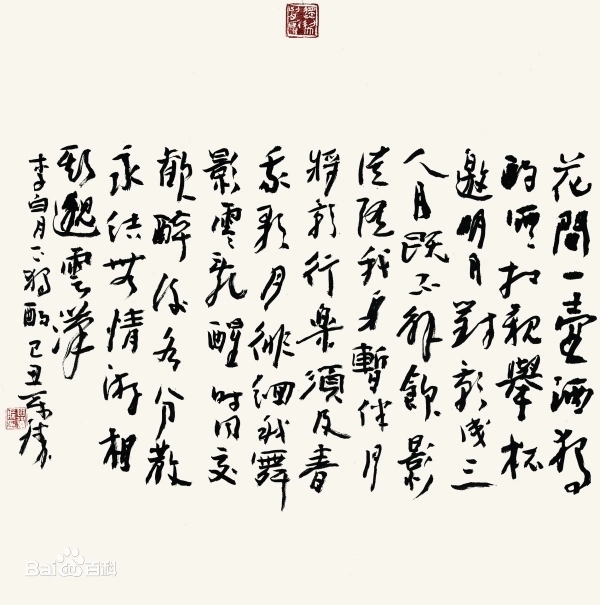 花間一壺酒獨
酌相親舉杯
邀明月對影成三
人月既不解飲影
徒隨我身暫伴月
將影行樂須及春
我歌月徘徊我舞
影零亂醒時同交
歡醉後各分散
永結無情游相
期邈雲漢
李白月下獨酌己丑
Bai百科